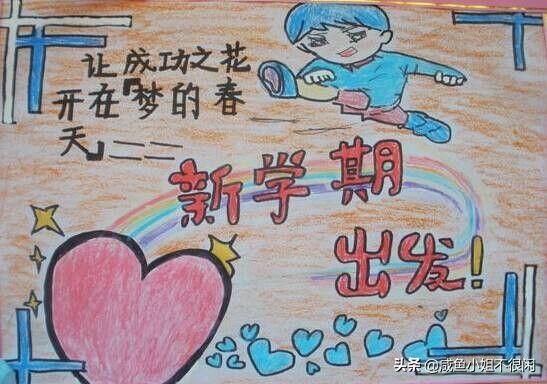 让成功之花
开在『梦的春
天』——
新学期
出发!
头条 @咸鱼小姐不很闲